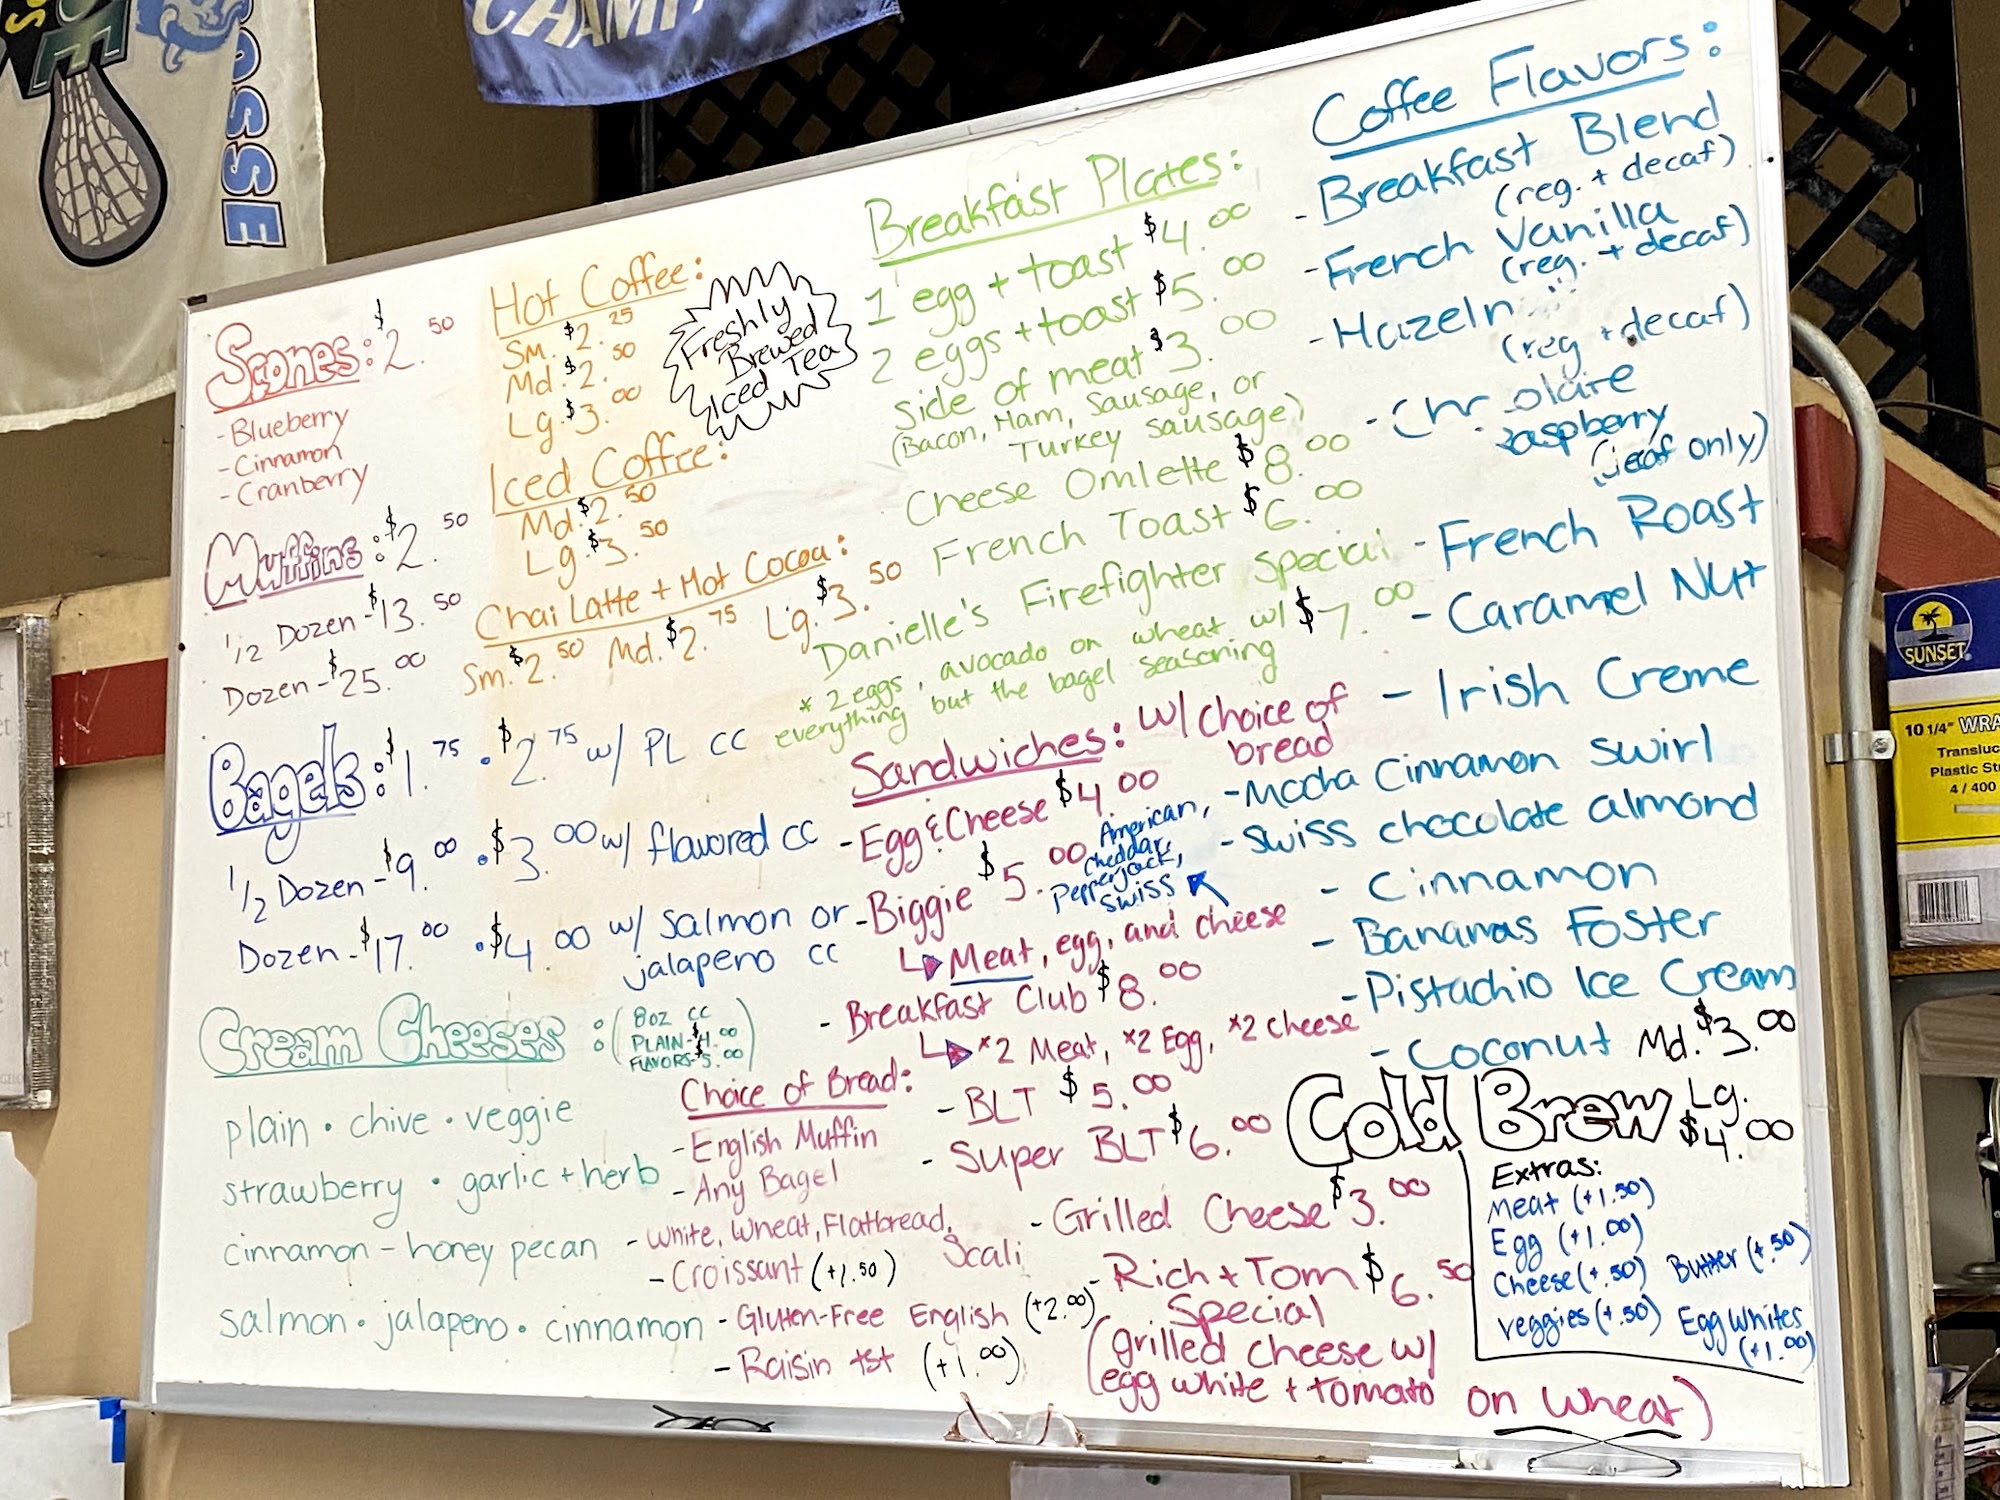 CHAMP
OSSE
Scones: $2.50
- Blueberry
- Cinnamon
- Cranberry
Muffins: $2.50
1/2 Dozen - $13.50
Dozen - $25.00
Bagels: $1.75 • $2.75 w/ PL CC
1/2 Dozen - $9.00 • $3.00 w/ flavored cc
Dozen - $17.00 • $4.00 w/ salmon or
jalapeno cc
Cream Cheeses: (8oz CC
PLAIN - $4.00
FLAVORS - $5.00)
plain • chive • veggie
strawberry • garlic + herb
cinnamon - honey pecan
salmon • jalapeno • cinnamon
Hot Coffee:
Sm. $2.25
Md. $2.50
Lg. $3.00
Freshly
Brewed
Iced Tea
Iced Coffee:
Md. $2.50
Lg. $3.50
Chai Latte + Hot Cocoa:
Sm. $2.50 Md. $2.75 Lg. $3.50
Breakfast Plates:
1 egg + toast $4.00
2 eggs + toast $5.00
side of meat $3.00
(Bacon, Ham, Sausage, or
Turkey sausage)
Cheese Omlette $8.00
French Toast $6.00
Danielle's Firefighter Special
* 2 eggs, avocado on wheat w/ $7.00
everything but the bagel seasoning
Sandwiches: w/ choice of
bread
- Egg & Cheese $4.00
- Biggie $5.00
American,
Cheddar,
Pepperjack,
Swiss
Meat, egg, and cheese
- Breakfast Club $8.00
*2 Meat, *2 Egg, *2 Cheese
- BLT $5.00
- Super BLT $6.00
- Grilled Cheese $3.00
- Rich + Tom $6.50
Special
(grilled cheese w/
egg white + tomato on wheat)
Choice of Bread:
- English Muffin
- Any Bagel
- White, Wheat, Flatbread,
Scali
- Croissant (+1.50)
- Gluten-Free English (+2.00)
- Raisin tst (+1.00)
Coffee Flavors:
- Breakfast Blend
(reg. + decaf)
- French Vanilla
(reg. + decaf)
- Hazeln
(reg + decaf)
- Ch olate
raspberry
(decaf only)
- French Roast
- Caramel Nut
- Irish Creme
- Mocha Cinnamon swirl
- swiss chocolate almond
- Cinnamon
- Bananas Foster
- Pistachio Ice Cream
- Coconut
Cold Brew Md. $3.00
Lg. $4.00
Extras:
Meat (+1.50)
Egg (+1.00)
Cheese (+.50) Butter (+.50)
veggies (+.50) Egg Whites
(+1.00)
SUNSET
10 1/4" WRA
Transluc
Plastic St
4 / 400